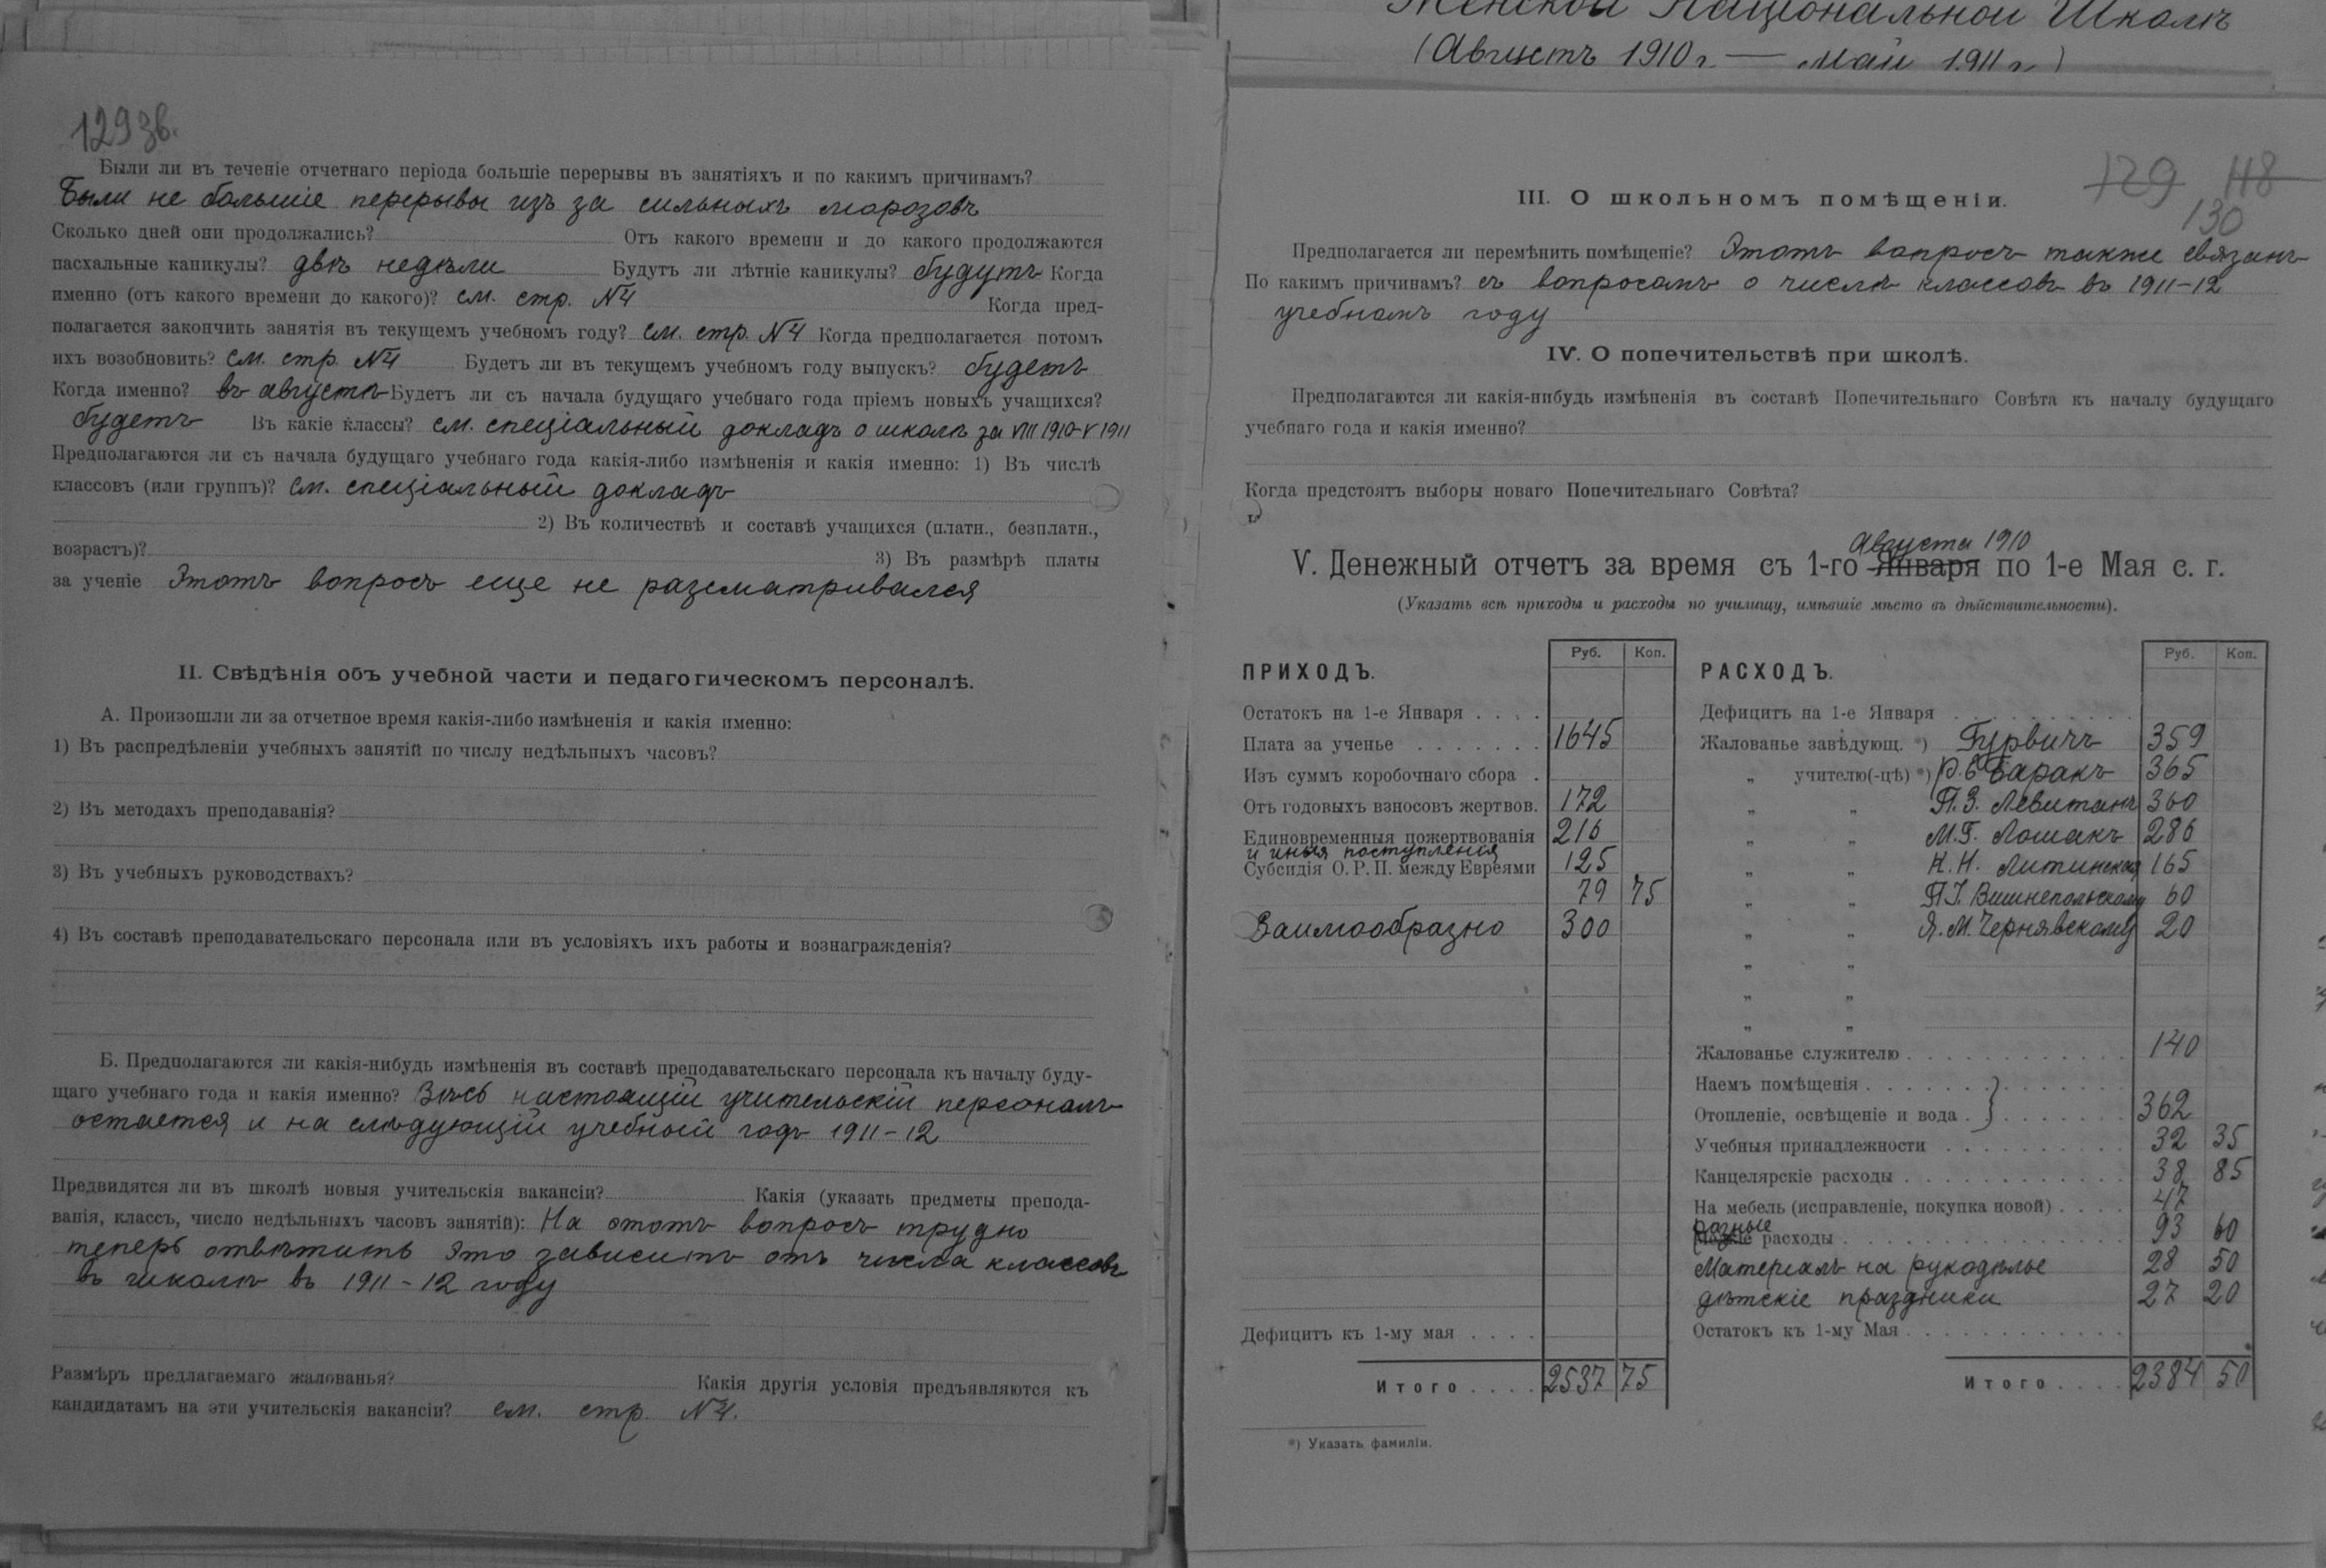 129 зв.
Были ли въ теченіе отчетнаго періода большіе перерывы въ занятіяхъ и по какимъ причинамъ?
Были не большіе перерывы изъ за сильныхъ морозовъ
Сколько дней они продолжались? Отъ какого времени и до какого продолжаются
пасхальные каникулы? двѣ недѣли Будутъ ли лѣтніе каникулы? будутъ Когда
именно (отъ какого времени до какого)? см. стр. №4 Когда пред-
полагается закончить занятія въ текущемъ учебномъ году? см. стр. №4 Когда предполагается потомъ
ихъ возобновить? см. стр. №4 Будетъ ли въ текущемъ учебномъ году выпускъ? будетъ
Когда именно? въ августѣ Будетъ ли съ начала будущаго учебнаго года пріемъ новыхъ учащихся?
будетъ Въ какіе классы? см. спеціальный докладъ о школѣ за VIII 1910-V 1911
Предполагаются ли съ начала будущаго учебнаго года какія-либо измѣненія и какія именно: 1) Въ числѣ
классовъ (или группъ)? см. спеціальный докладъ
2) Въ количествѣ и составѣ учащихся (платн., безплатн.,
возрастъ)? 3) Въ размѣрѣ платы
за ученіе Этотъ вопросъ еще не разсматривался
II. Свѣдѣнія объ учебной части и педагогическомъ персоналѣ.
А. Произошли ли за отчетное время какія-либо измѣненія и какія именно:
1) Въ распредѣленіи учебныхъ занятій по числу недѣльныхъ часовъ?
2) Въ методахъ преподаванія?
3) Въ учебныхъ руководствахъ?
4) Въ составѣ преподавательскаго персонала или въ условіяхъ ихъ работы и вознагражденія?
Б. Предполагаются ли какія-нибудь измѣненія въ составѣ преподавательскаго персонала къ началу буду-
щаго учебнаго года и какія именно? Вѣсь настоящій учительскій персоналъ
остается и на слѣдующій учебный годъ 1911-12
Предвидятся ли въ школѣ новыя учительскія вакансіи? Какія (указать предметы препода-
ванія, классъ, число недѣльныхъ часовъ занятій): На этотъ вопросъ трудно
теперь отвѣтить это зависитъ отъ числа классовъ
въ школѣ въ 1911-12 году
Размѣръ предлагаемаго жалованья? Какія другія условія предъявляются къ
кандидатамъ на эти учительскія вакансіи? см. стр. №4.
Женской Національной Школѣ
(Августъ 1910 г. — Май 1911 г.)
129 118
130
III. О школьномъ помѣщеніи.
Предполагается ли перемѣнить помѣщеніе? Этотъ вопросъ также связанъ
По какимъ причинамъ? съ вопросомъ о числѣ классовъ въ 1911-12
учебномъ году
IV. О попечительствѣ при школѣ.
Предполагаются ли какія-нибудь измѣненія въ составѣ Попечительнаго Совѣта къ началу будущаго
учебнаго года и какія именно?
Когда предстоятъ выборы новаго Попечительнаго Совѣта?
Августа 1910
V. Денежный отчетъ за время съ 1-го Января по 1-е Мая с. г.
(Указать всѣ приходы и расходы по училищу, имѣвшіе мѣсто въ дѣйствительности).
ПРИХОДЪ. Руб. Коп.
Остатокъ на 1-е Января
Плата за ученье 1645
Изъ суммъ коробочнаго сбора
Отъ годовыхъ взносовъ жертвов. 172
Единовременныя пожертвованія 216
и иныя поступленія
Субсидія О. Р. П. между Евреями 125
79 75
Заимообразно 300
Дефицитъ къ 1-му мая
Итого 2537 75
*) Указать фамиліи.
РАСХОДЪ. Руб. Коп.
Дефицитъ на 1-е Января
Жалованье завѣдующ. *) Гурвичъ 359
„ учителю(-цѣ) *) Р. Е. Баракъ 365
„ „ П. З. Левитанъ 360
„ „ М. Г. Лошакъ 286
„ „ Н. Н. Литинская 165
„ „ П. І. Вишнепольскому 60
„ „ Я. М. Чернявскому 20
„ „
„ „
„ „
Жалованье служителю 140
Наемъ помѣщенія
Отопленіе, освѣщеніе и вода } 362
Учебныя принадлежности 32 35
Канцелярскіе расходы 38 85
На мебель (исправленіе, покупка новой) 47
разные
Мелкіе расходы 93 60
Матеріалъ на рукодѣлье 28 50
дѣтскіе праздники 27 20
Остатокъ къ 1-му Мая
Итого 2384 50